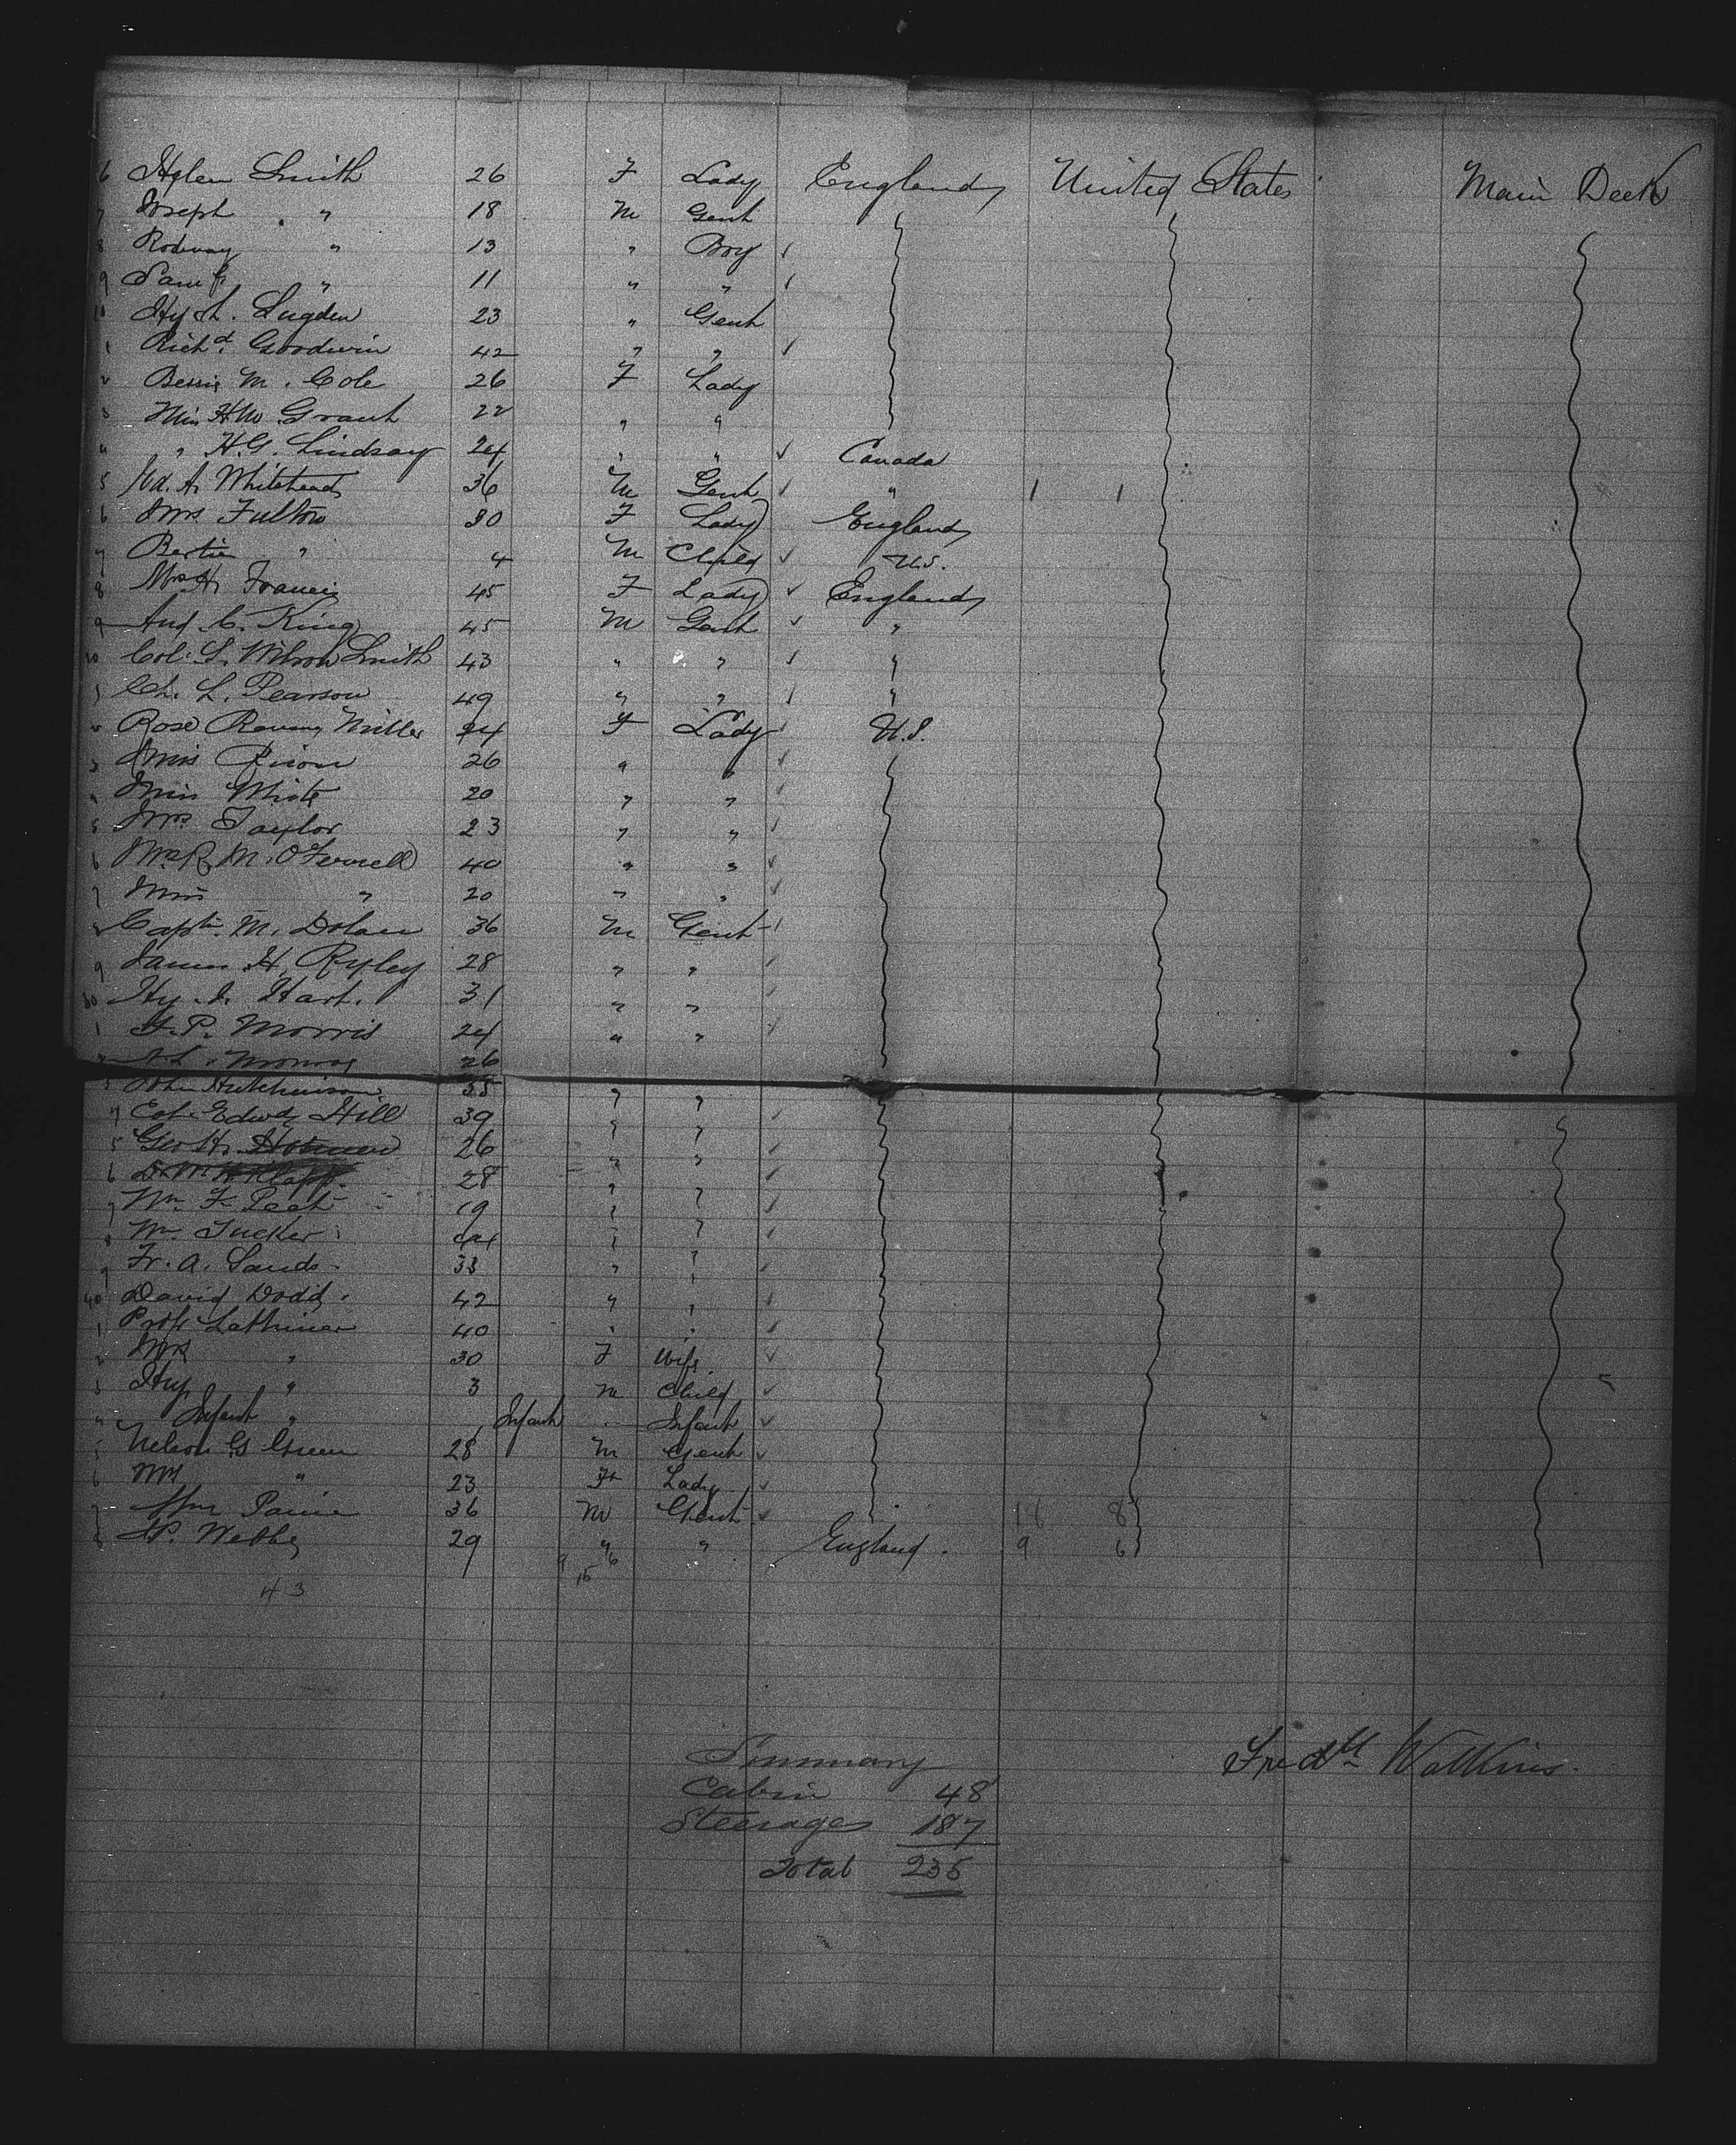 6 Helen Smith 26 F Lady England United States Main Deck
7 Joseph " 18 M Gent
8 Rodway " 13 " Boy
9 Saml " 11 " "
10 Hy L. Lugden 23 " Gent
1 Richd. Goodwin 42 " "
2 Bessie M. Cole 26 F Lady
3 Miss H.W. Grant 22 " "
4 " H.G. Lindsay 24 " " Canada
5 Ed. A. Whitehead 36 M Gent " 1 1
6 Mrs Fulton 30 F Lady England
7 Bertie " 4 M Child U.S.
8 Mrs H. Francis 45 F Lady England
9 C. King 45 M Gent "
20 Col. L. Wilson Smith 43 " " "
1 Ch. L. Pearson 49 " " "
2 Rose Miller 24 F Lady U.S.
3 Miss 26 " "
4 Miss White 20 " "
5 Mrs Taylor 23 " "
6 Mrs R. M. O'Ferrell 40 " "
7 Miss " 20 " "
8 Capt. M. Dolan 36 M Gent
9 James H. Ryley 28 " "
30 Hy. I. Hart. 31 " "
1 F. P. Morris 24 " "
2 Monroe 26
3 John Hutchinson 35 " "
4 Edwd Hill 39 " "
5 Geo H. 26 " "
6 Dr Wm H Klapp. 28 " "
7 Wm F Peet 19 " "
8 Wm Tucker 44 " "
9 Fr. A. Sands 33 " "
40 David Dodd. 42 " "
1 Profr Lattimer 40 " "
2 Mrs " 30 F Wife
3 Hy " 3 M Child
4 Infant " Infant Infant
5 Nelson G Green 28 M Gent
6 Mrs " 23 F Lady
7 Wm Paine 36 M Gent 18 8
8 P. Webb 29 " " England. 9 6
43
Summary
Fredk Watkins.
Cabin 48
Steerage 187
Total 235